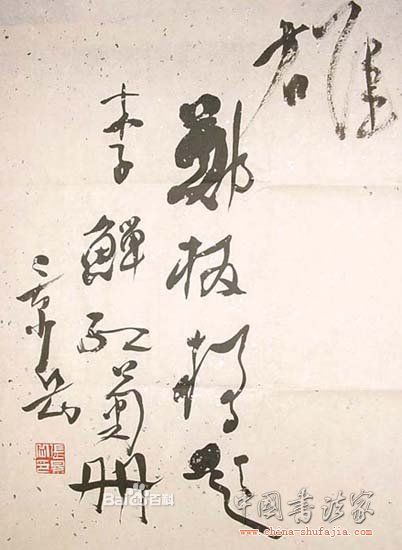 雄
鄭板橋題
李鱓
册
Bai百科
中國書法家
www.china-shufajia.com